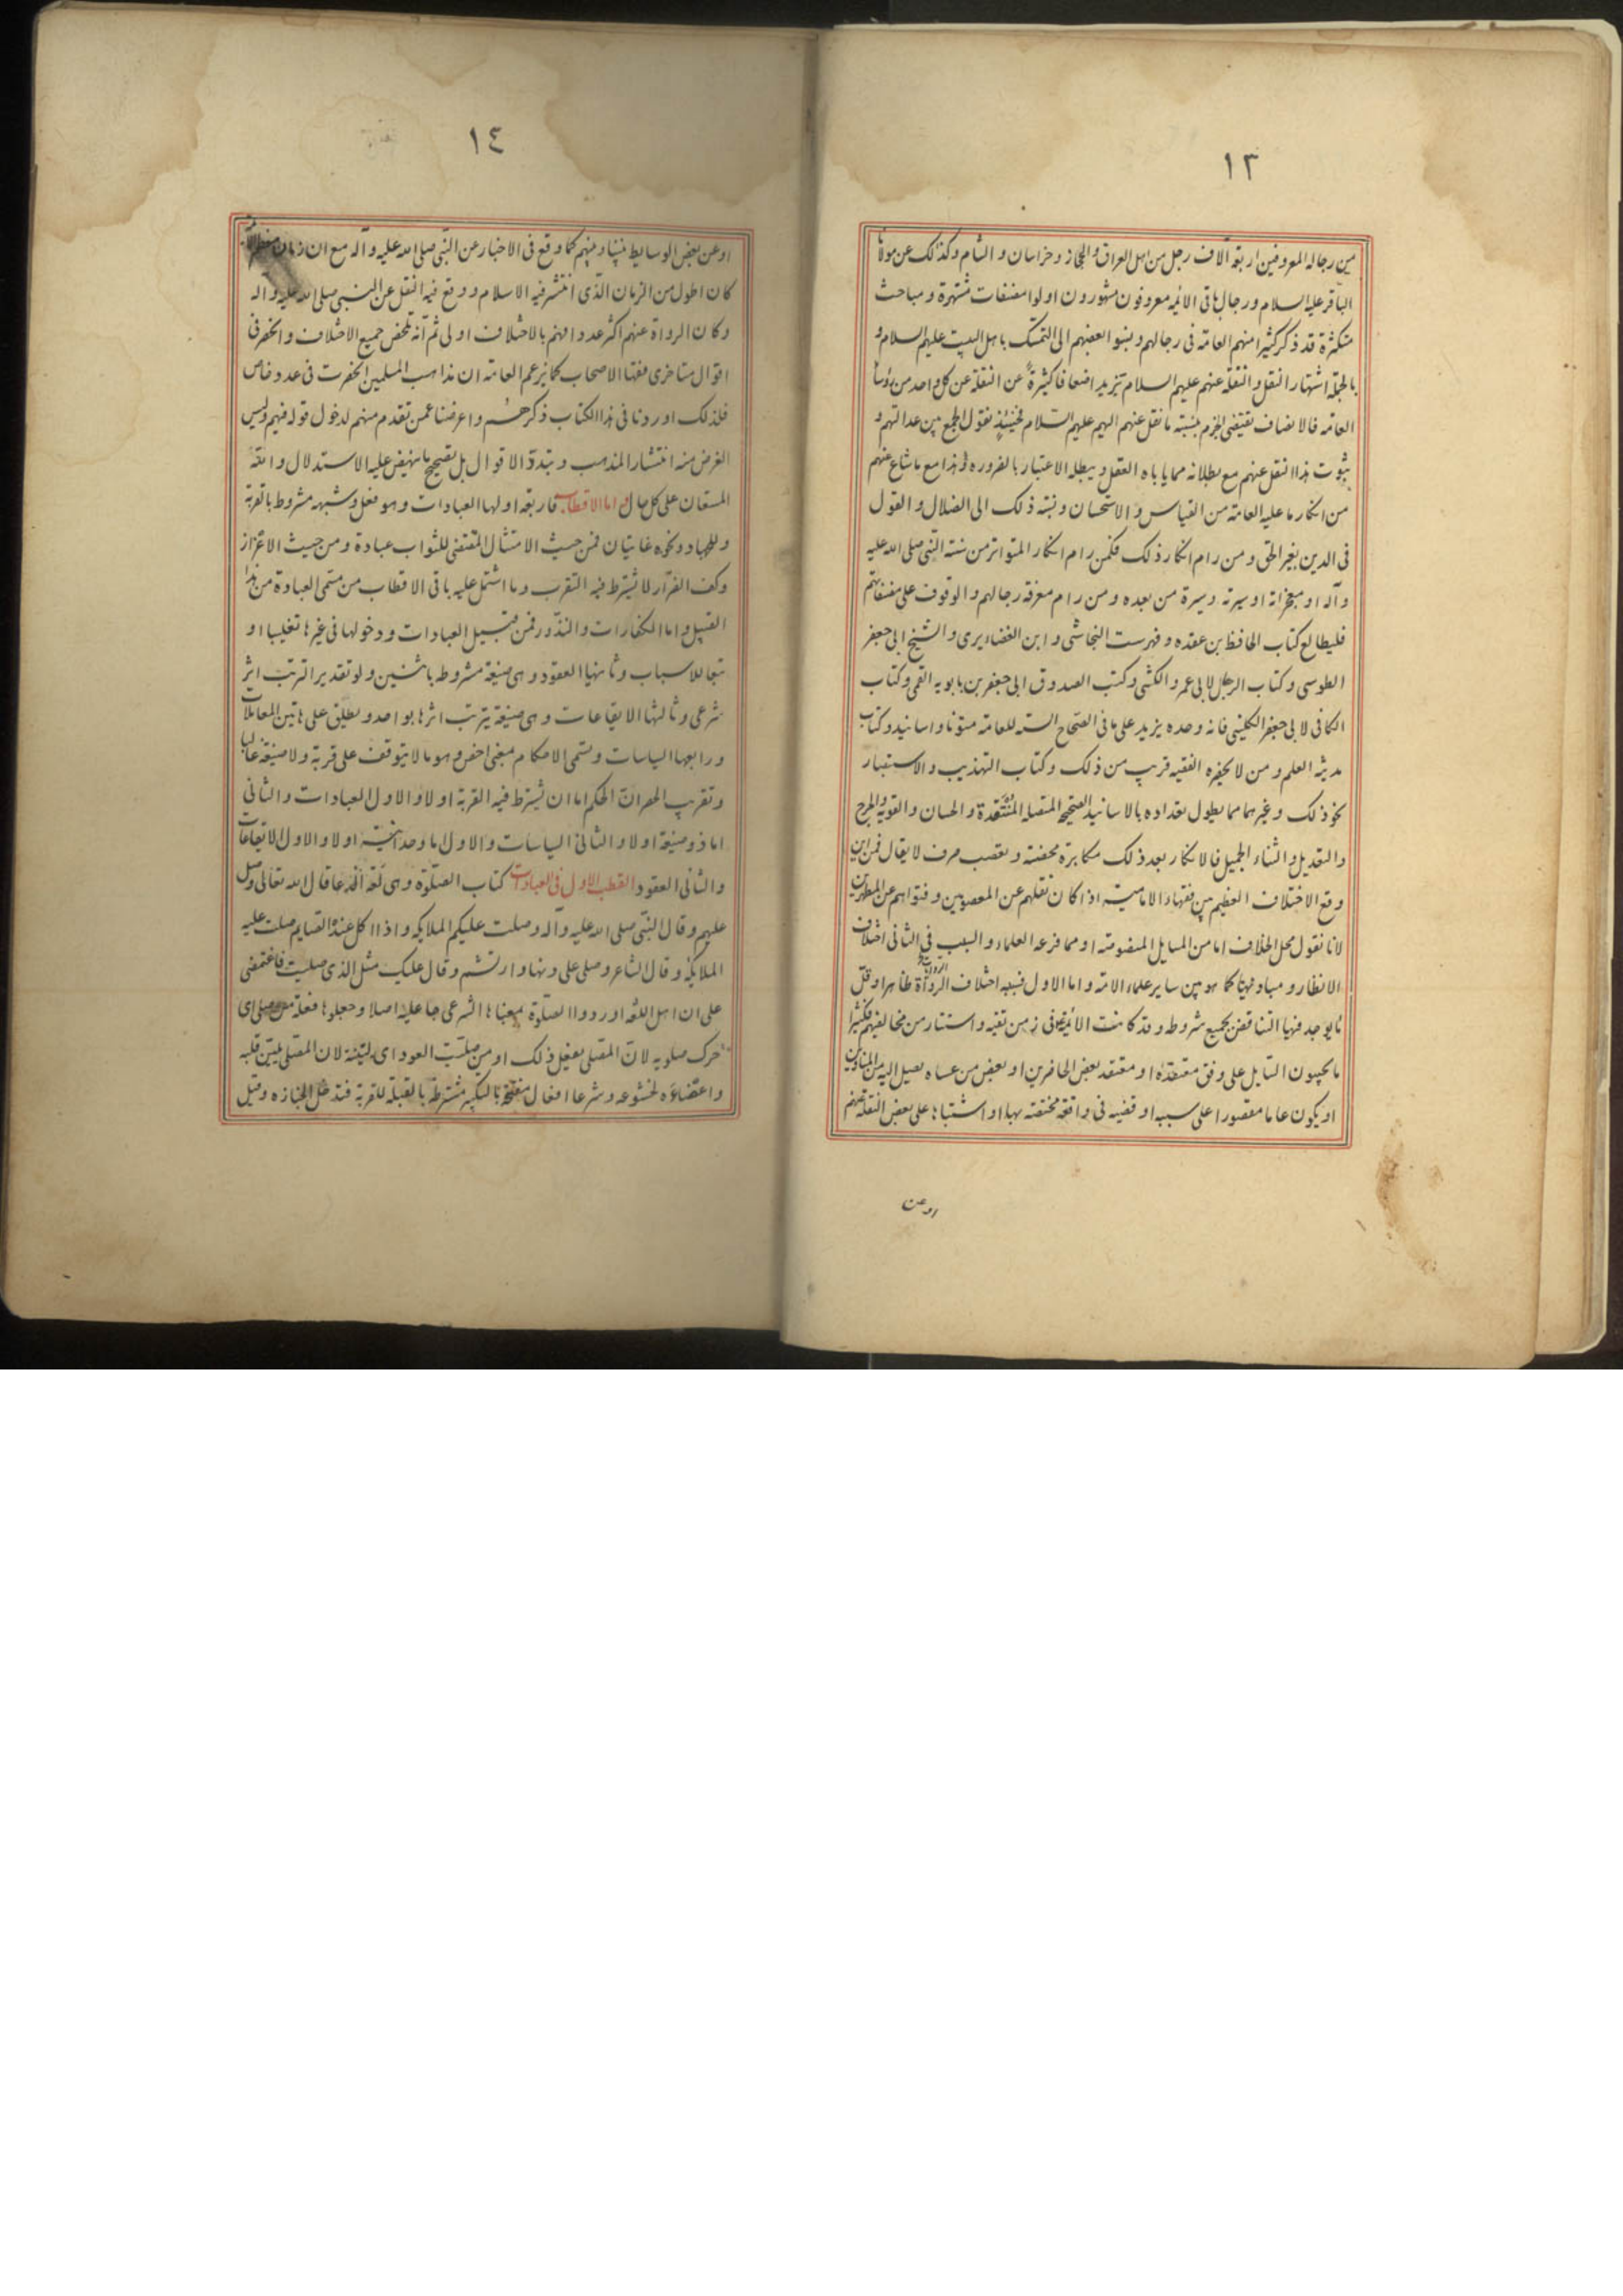 ١٣
من رجاله المعروفين اربعة آلاف رجل من اهل العراق والحجاز وخراسان والشام وكذلك عن مولانا
الباقر عليه السلام ورجال باقى الائمه معروفون مشهورون اولوا مصنفات مشتهرة ومباحث
متكثرة قد ذكر كثيرا منهم العامة فى رجالهم ونسبوا بعضهم الى التمسك باهل البيت عليهم السلام و
بالجملة اشتهار النقل والنقلة عنهم عليهم السلام تزيد اضعافا كثيرة عن النقلة عن كل واحد من رؤسا
العامه فالانصاف يقتضى الجزم بنسبة ما نقل عنهم اليهم عليهم السلام فحينئذ نقول الجمع بين عدالتهم و
ثبوت هذا النقل عنهم مع بطلانه مما ياباه العقل ويبطله الاعتبار بالضروره وهذا مع ما شاع عنهم
من انكار ما عليه العامة من القياس والاستحسان ونسبة ذلك الى الضلال والقول
فى الدين بغير الحق ومن رام انكار ذلك فكمن رام انكار المتواتر من سنة النبى صلى الله عليه
وآله او معجزاته او سيرته وسيرة من بعده ومن رام معرفة رجالهم والوقوف على مصنفاتهم
فليطالع كتاب الحافظ بن عقده وفهرست النجاشى و ابن الغضايرى والشيخ ابى جعفر
الطوسى وكتاب الرجال لابى عمرو الكشى وكتب الصدوق ابى جعفر بن بابويه القمى وكتاب
الكافى لابى جعفر الكلينى فانه وحده يزيد على ما فى الصحاح السته للعامة متونا واسانيد وكتاب
مدينة العلم ومن لا يحضره الفقيه قريب من ذلك وكتاب التهذيب والاستبصار
نحو ذلك وغيرهما مما يطول تعداده بالاسانيد الصحيحة المتصلة المنتقدة والحسان والقوية والجرح
والتعديل والثناء الجميل فالانكار بعد ذلك مكابرة محضة وتعصب صرف لا يقال فمن اين
وقع الاختلاف العظيم بين فقهاء الاماميه اذا كان نقلهم عن المعصومين وفتواهم عن المطهرين
لانا نقول محل الخلاف اما من المسايل المنصوصة او مما فرعه العلماء والسبب فى الثانى اختلاف
الانظار ومباديها كما هو بين ساير علماء الامة واما الاول فسببه اختلاف الروايات ظاهرا وقل
ما يوجد فيها التناقض بجميع شروطه وقد كانت الائمة فى زمن تقية واستتار من مخالفيهم فكثيرا
ما يجيبون السايل على وفق معتقده او معتقد بعض الحاضرين او بعض من عساه يصل اليه من المناوين
او يكون عاما مقصورا على سببه او قضيه فى واقعة مختصة بها او اشتباه على بعض النقلة عنهم
او عن
١٤
او عن بعض الوسايط بيننا وبينهم كما وقع فى الاخبار عن النبى صلى الله عليه وآله مع ان زمان معظم الائمة
كان اطول من الزمان الذى انتشر فيه الاسلام ووقع فيه النقل عن النبى صلى الله عليه وآله
وكان الرواة عنهم اكثر عددا فهم بالاختلاف اولى ثم انه تلخص جميع الاختلاف وانحصر فى
اقوال متاخرى فقها الاصحاب كما يزعم العامة ان مذاهب المسلمين انحصرت فى عدد خاص
فلذلك اوردنا فى هذا الكتاب ذكرهم واعرضنا عمن تقدم منهم لدخول قوله فيهم وليس
الغرض منه انتشار المذهب وتبدد الاقوال بل تصحيح ما ينهض عليه الاستدلال والله
المستعان على كل حال واما الاقطاب فاربعة اولها العبادات وهو فعل وشبهه مشروط بالقربة
وللجهاد ونحوه غايتان فمن حيث الامتثال المقتضى للثواب عبادة ومن حيث الاعزاز
وكف الضرار لا يشترط فيه التقرب وما اشتمل عليه باقى الاقطاب من مسمى العبادة من هذا
القبيل واما الكفارات والنذور فمن قبيل العبادات ودخولها فى غيرها تغليبا او
تبعا للاسباب وثانيها العقود وهى صيغة مشروطه باثنين ولو تقديرا لترتب اثر
شرعى وثالثها الايقاعات وهى صيغة يترتب اثرها بواحد ويطلق على هاتين المعاملات
ورابعها السياسات وتسمى الاحكام بمعنى اخص وهو ما لا يتوقف على قربة ولا صيغة غالبا
وتقريب الحصر ان الحكم اما ان يشترط فيه القربة اولا والاول العبادات والثانى
اما ذو صيغة اولا والثانى السياسات والاول اما وحدانية اولا والاول الايقاعات
والثانى العقود القطب الاول فى العبادات كتاب الصلوة وهى لغة الدعا قال الله تعالى وصل
عليهم وقال النبى صلى الله عليه وآله وصلت عليكم الملايكه واذا اكل عند الصايم صلت عليه
الملايكة وقال الشاعر وصلى على دنها وارتشم وقال عليك مثل الذى صليت فاغتمضى
على ان اهل اللغة اوردوا الصلوة بمعناها الشرعى جاعليه اصلا وجعلوها فعلة من صلى اى
حرك صلويه لان المصلى يفعل ذلك او من صليت العود اى لينته لان المصلى يلين قلبه
واعضاءه لخشوعه وشرعا افعال مفتتحة بالتكبير مشترطة بالقبلة للقربة فتدخل الجنازه وقيل